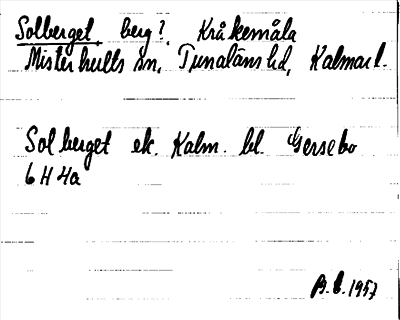 Solberget, berg?, Kråkemåla
Misterhults sn, Tunaläns hd, Kalmar l.
Solberget ek. Kalm. bl. Gersebo
6 H 4a
B.E. 1957